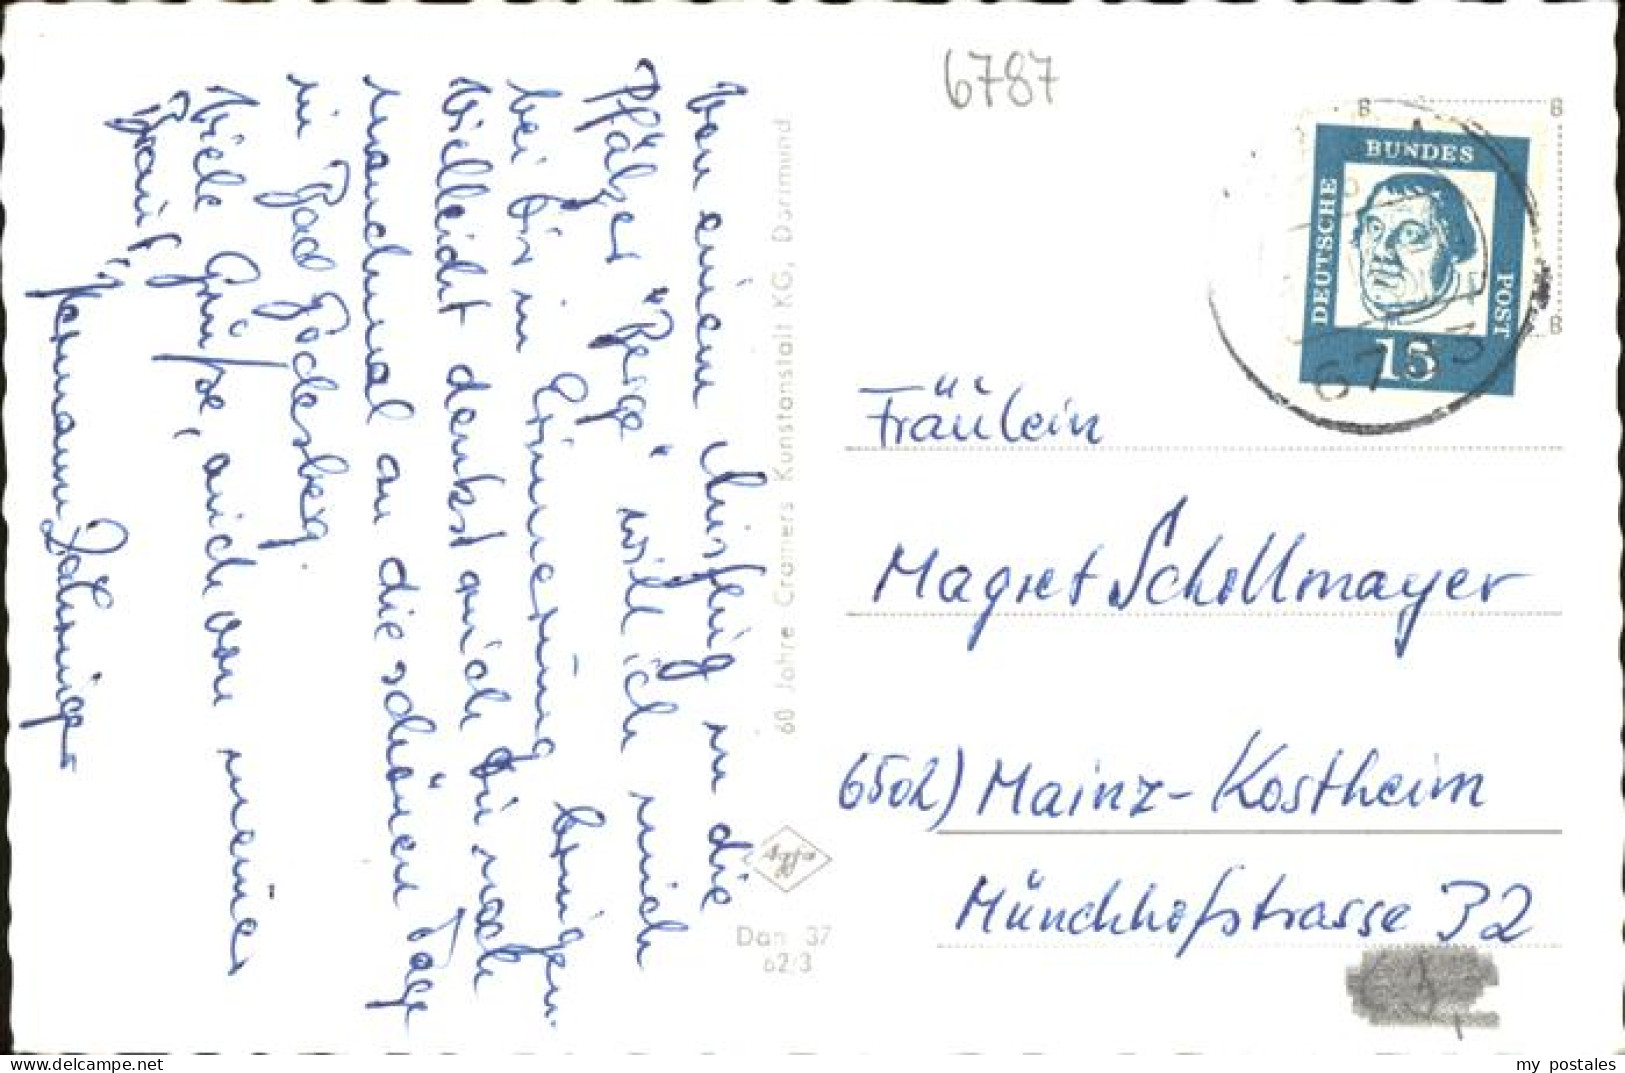 Von einem Ausflug in die
Pfälzer "Berge" will ich mich
bei Dir in Erinnerung bringen.
Vielleicht denkst auch Du noch
manchmal an die schönen Tage
in Bad Godesberg.
Viele Grüße, auch von meiner
Braut,
Hermann
60 Jahre Cramers Kunstanstalt KG, Dortmund
Dan 37
62/3
6787
B B
B
DEUTSCHE BUNDES POST
15
Fräulein
Magret Schollmayer
6502) Mainz-Kostheim
Münchhofstrasse 32
my postales